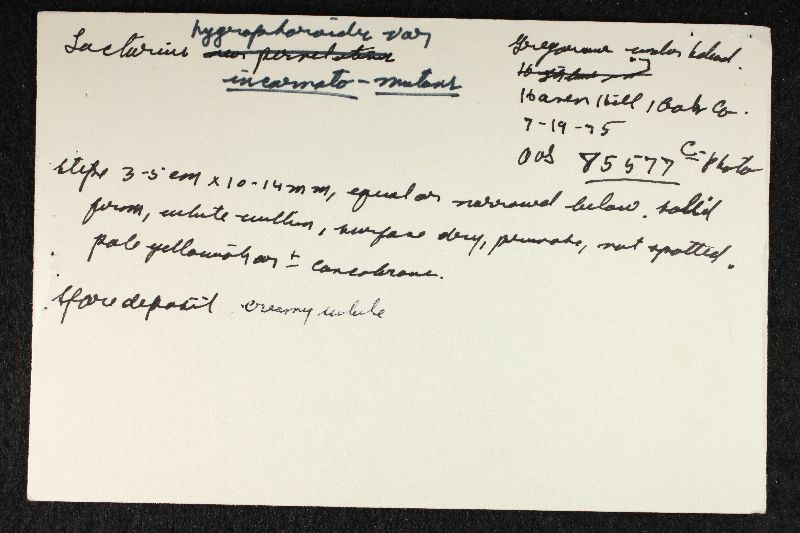 Lactarius hygrophoroides var
incarnato-mutans
Gregarious under
Haven Hill, Oak Co.
7-19-75
85577 C-Photo
stipe 3-5 cm x 10-14 mm, equal or narrowed below. solid
firm, white within, surface dry, pruinose, not spotted.
pale yellowish or ± concolorous.
Spore deposit creamy white